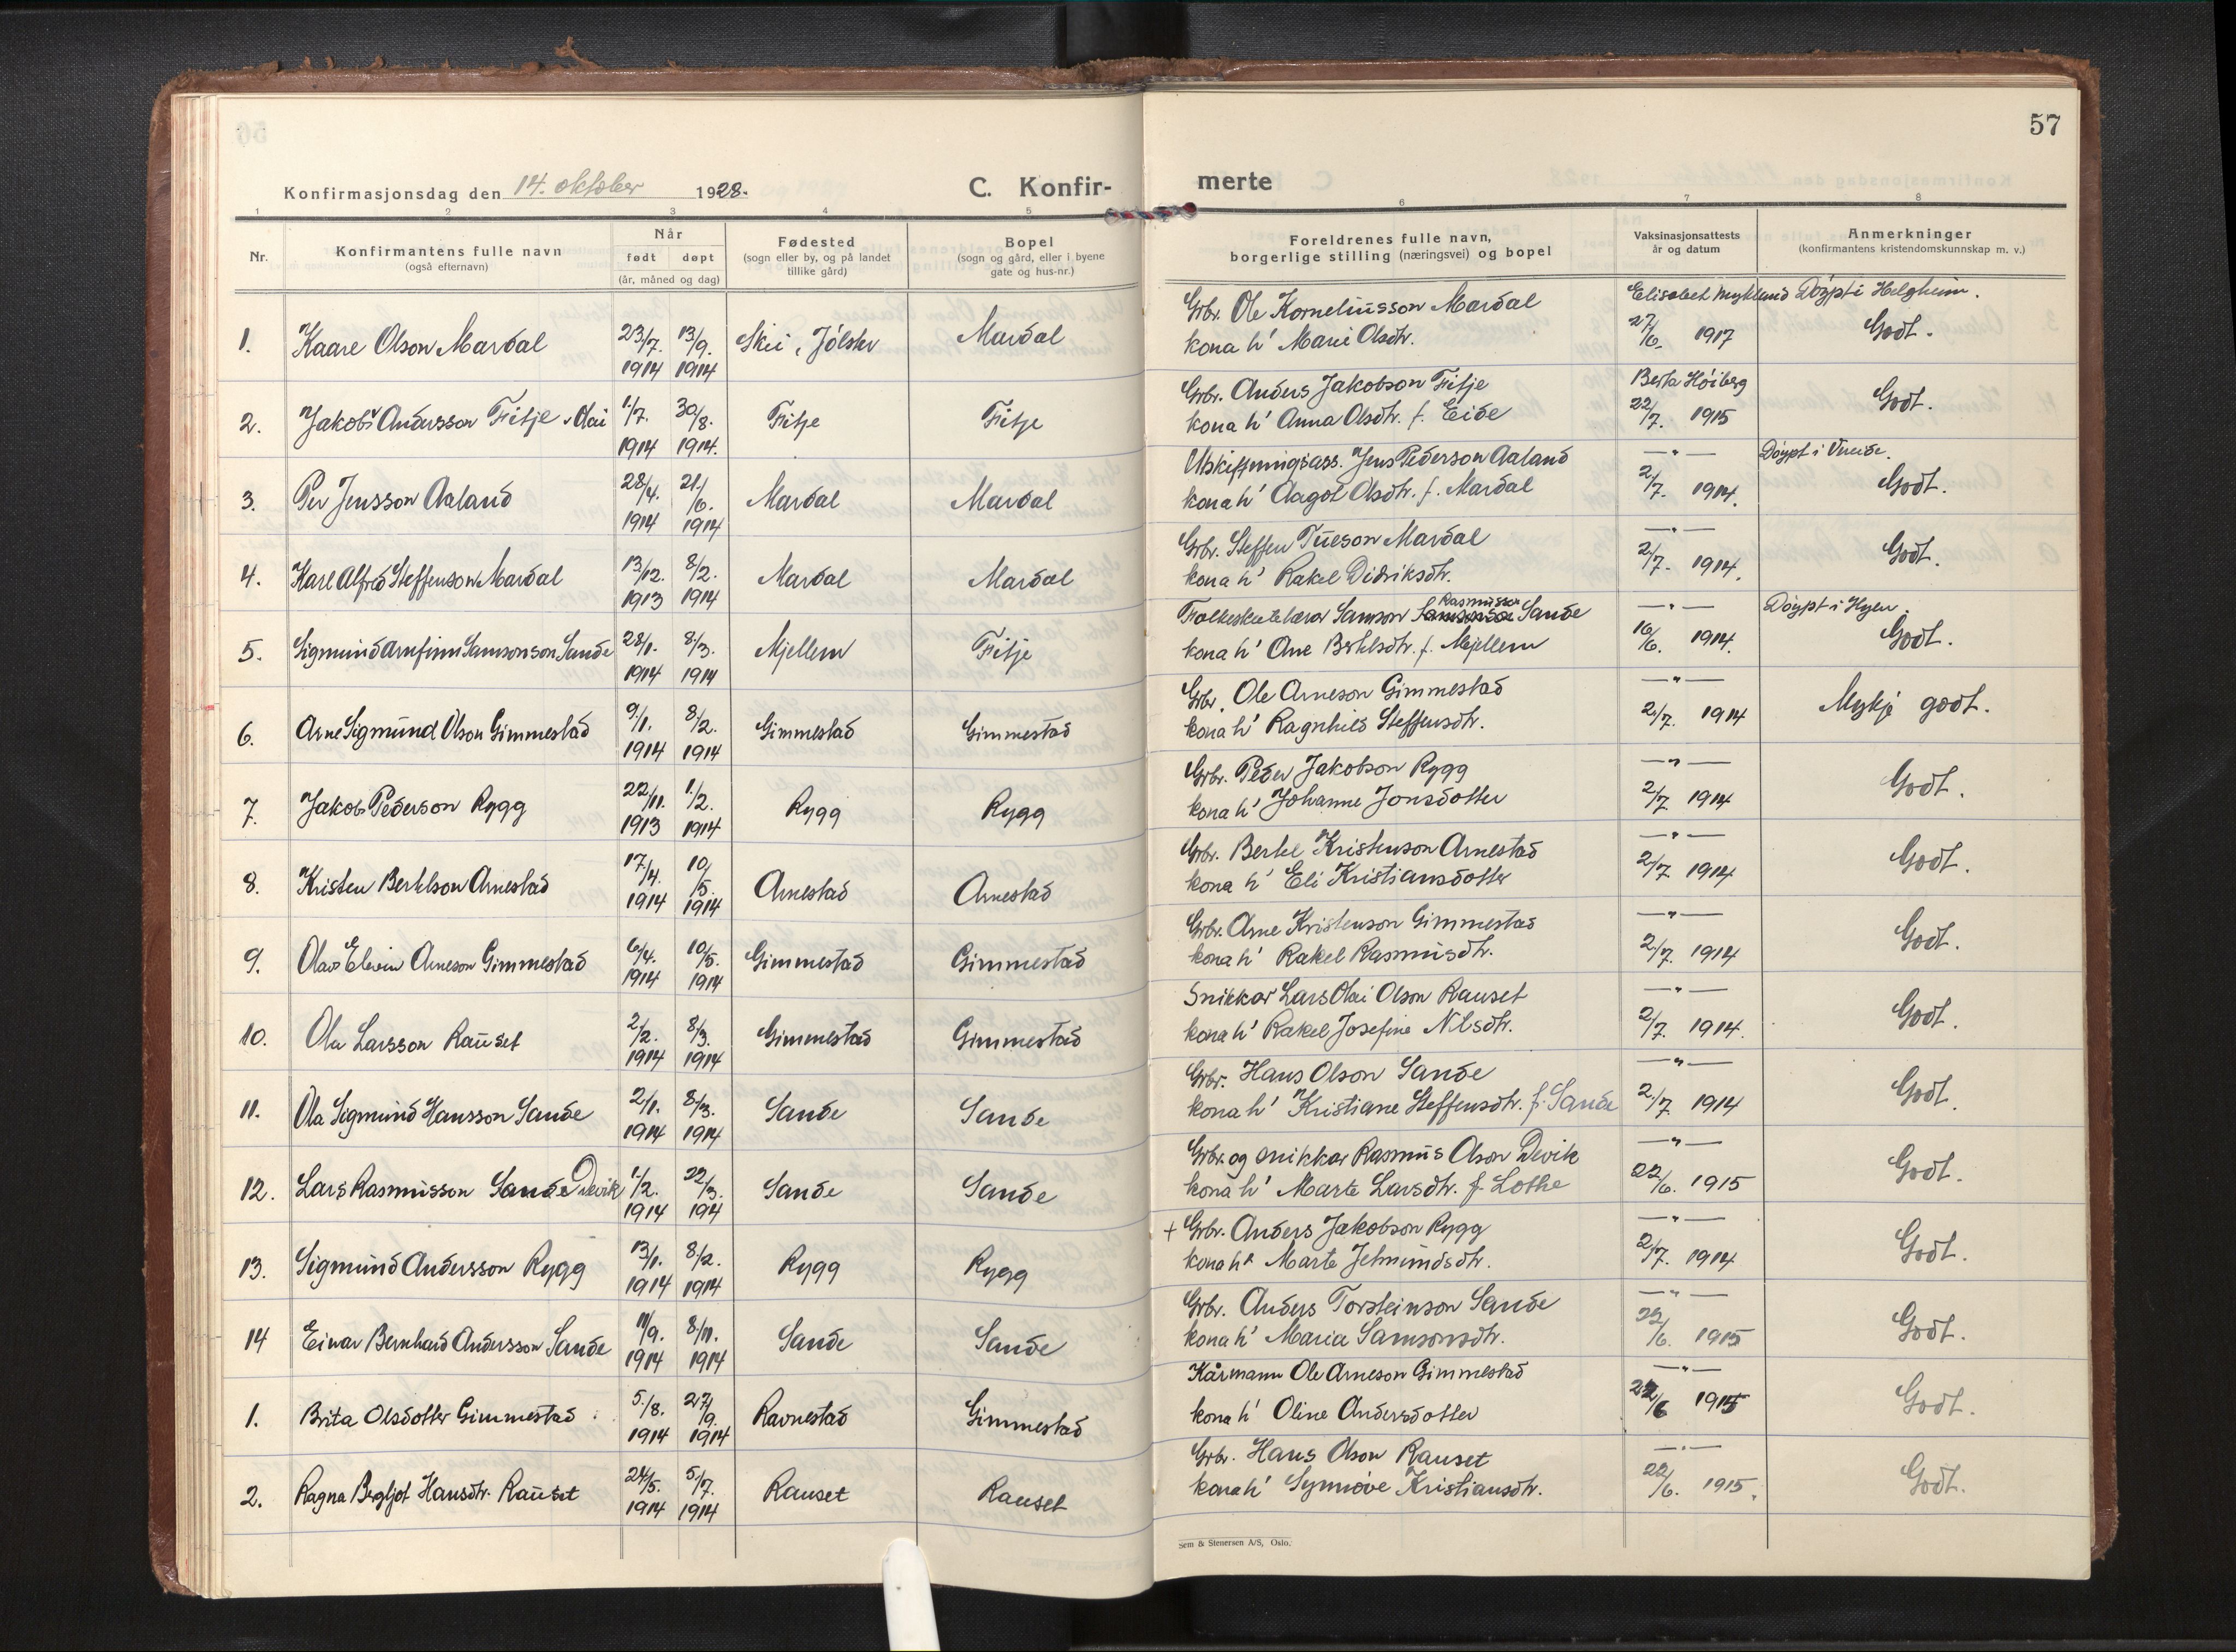 57
Konfirmasjonsdag den 14. oktober 1928.
C. Konfir-
merte
1 2 3 4 5 6 7 8
Nr.
Konfirmantens fulle navn
(også efternavn)
Når
født døpt
(år, måned og dag)
Fødested
(sogn eller by, og på landet
tillike gård)
Bopel
(sogn og gård, eller i byene
gate og hus-nr.)
Foreldrenes fulle navn,
borgerlige stilling (næringsvei) og bopel
Vaksinasjonsattests
år og datum
Anmerkninger
(konfirmantens kristendomskunnskap m. v.)
1. Kaare Olson Mardal 23/7. 1914 13/9. 1914 Skei, Jølster Mardal
Grbr. Ole Korneliusson Mardal
kona h' Marie Olsdtr.
Elisabet Myklund
27/6. 1917
Døypt i Helgheim.
Godt.
2. Jakob Andersson Fitje 1/7. 1914 30/8. 1914. Fitje Fitje
Grbr. Anders Jakobson Fitje
kona h' Anna Olsdtr. f. Eide
Berta Høiberg
22/7. 1915
Godt.
3. Per Jensson Aaland 28/4. 1914 21/6. 1914 Mardal Mardal
Utskiftningsass. Jens Pederson Aaland
kona h' Aagot Olsdtr. f. Mardal
—"—
2/7. 1914.
Døypt i Vreide.
Godt.
4. Karl Alfred Steffenson Mardal 13/12. 1913 8/2. 1914 Mardal Mardal
Grbr. Steffen Tueson Mardal
kona h' Rakel Didriksdtr.
—"—
2/7. 1914.
Godt.
5. Sigmund Arnfinn Samsonson Sande 28/1. 1914 8/3. 1914 Mjellem Fitje
Rasmusson
Folkeskulelærar Samson Samsonson Sande
kona h' Ane Bertelsdtr. f. Mjellem
—"—
16/6. 1914.
Døypt i Hyen.
Godt.
6. Arne Sigmund Olson Gimmestad 9/1. 1914 8/2. 1914 Gimmestad Gimmestad
Grbr. Ole Arneson Gimmestad
kona h' Ragnhild Steffensdtr.
—"—
2/7. 1914
Mykje godt.
7. Jakob Pederson Rygg 22/11. 1913 1/2. 1914 Rygg Rygg
Grbr. Peder Jakobson Rygg
kona h' Johanne Jonsdotter
—"—
2/7. 1914
Godt.
8. Kristen Bertelson Arnestad 17/4. 1914 10/5. 1914 Arnestad Arnestad
Grbr. Bertel Kristenson Arnestad
kona h' Eli Kristiansdotter
—"—
2/7 1914
Godt.
9. Olav Elvin Arneson Gimmestad 6/4. 1914 10/5. 1914 Gimmestad Gimmestad
Grbr. Arne Kristenson Gimmestad
kona h' Rakel Rasmusdtr.
—"—
2/7. 1914
Godt.
10. Ola Larsson Rauset 2/2. 1914 8/3. 1914 Gimmestad Gimmestad
Snikkar Lars Olai Olson Rauset
kona h' Rakel Josefine Nilsdtr.
—"—
2/7. 1914.
Godt.
11. Ola Sigmund Hansson Sande 2/1. 1914 8/3. 1914 Sande Sande
Grbr. Hans Olson Sande
kona h' Kristiane Steffensdtr. f. Sande
—"—
2/7 1914
Godt.
12. Lars Rasmusson Sande Devik 1/2. 1914 22/3. 194 Sande Sande
Grbr. og snikkar Rasmus Olson Devik
kona h' Marte Larsdtr. f. Lothe
—"—
22/6. 1915
Godt.
13. Sigmund Andersson Rygg 13/1. 1914 8/2. 1914 Rygg Rygg
+ Grbr. Anders Jakobson Rygg
kona h' Marte Jetmundsdtr.
—"—
2/7. 1914
Godt.
14 Einar Bernhard Andersson Sande 11/9. 1914 8/11. 1914 Sande Sande
Grbr. Anders Torsteinson Sande
kona h' Maria Samsonsdtr.
—"—
22/6. 1915
Godt.
1. Brita Olsdotter Gimmestad 5/8. 1914 27/9. 1914 Ravnestad Gimmestad
Kårmann Ole Arneson Gimmestad
kona h' Oline Andersdotter
—"—
22/6 1915
Godt.
2. Ragna Bergljot Hansdtr. Rauset 24/5. 1914 5/7. 1914 Rauset Rauset
Grbr. Hans Olson Rauset
kona h' Synnøve Kristiansdtr.
—"—
22/6. 1915.
Godt.
Sem & Stenersen A/S, Oslo.